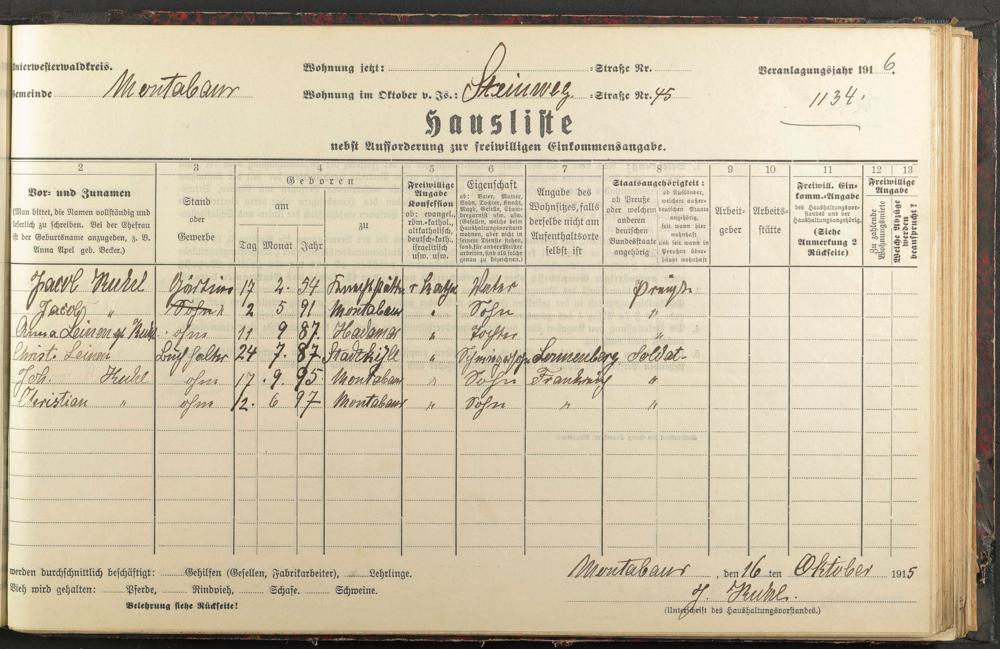 Unterwesterwaldkreis.
Wohnung jetzt: -Straße Nr.
Veranlagungsjahr 1916.
Gemeinde Montabaur
Wohnung im Oktober v. Js.: Steinweg -Straße Nr. 45
1134.
Hausliste
nebst Aufforderung zur freiwilligen Einkommensangabe.
2 3 4 5 6 7 8 9 10 11 12 13
Vor- und Zunamen
(Man bittet, die Namen vollständig und
leserlich zu schreiben. Bei der Ehefrau
ist der Geburtsname anzugeben, z. B.
Anna Apel geb. Becker.)
Stand
oder
Gewerbe
Geboren
am
zu
Tag Monat Jahr
Freiwillige
Angabe
Konfession
ob: evangel.,
röm.-kathol.,
altkatholisch,
deutsch-kath.,
israelitisch
usw. usw.
Eigenschaft
ob: Vater, Mutter,
Sohn, Tochter, Knecht,
Magd, Geselle,
Angabe des
Wohnsitzes, falls
derselbe nicht am
Aufenthaltsorte
selbst ist
Staatsangehörigkeit:
ob Preuße
oder welchem
anderen
deutschen
Bundesstaate
angehörig
ob Ausländer,
welchem außer-
deutschen Staate
angehörig,
seit wann hier
wohnhaft
und seit wann in
Preußen über-
haupt wohnhaft
Arbeit-
geber
Arbeits-
stätte
Freiwill. Ein-
komm.-Angabe
des Haushaltungsvor-
standes und der
Haushaltungsangehörig.
(Siehe
Anmerkung 2
Rückseite)
Freiwillige
Angabe
Zu zahlende
Wohnungsmiete
Welche Abzüge
werden
beansprucht?
Jacob Kuhl 17 2. 54 r Kath. Vater Preuße
Jacob " Sohn 2 5 91 Montabaur " Sohn "
Anna ohne 11 9 87. Hadamar " Tochter "
Christ. Buchhalter 24 7. 87 Stadtkyll " Schwiegersohn Sonnenberg Soldat
Joh. Kuhl ohne 17. 9. 95 Montabaur " Sohn Frankreich "
Christian " ohne 12. 6 97 Montabaur " Sohn " "
werden durchschnittlich beschäftigt: Gehilfen (Gesellen, Fabrikarbeiter), Lehrlinge.
Vieh wird gehalten: Pferde, Rindvieh, Schafe. Schweine.
Belehrung siehe Rückseite!
Montabaur, den 16 ten Oktober 1915
J. Kuhl.
(Unterschrift des Haushaltungsvorstandes.)